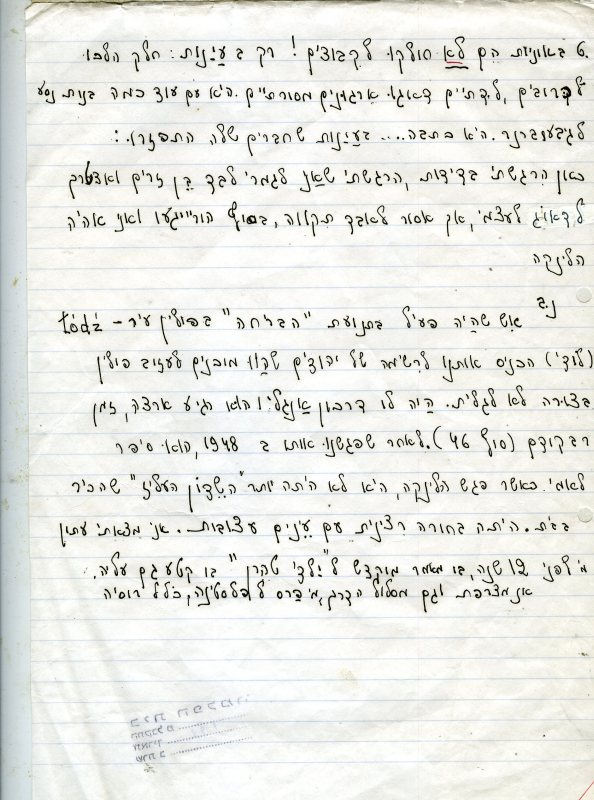 6. באוניות הם לא חולקו לקבוצים! רק בעינות: חלק הלכו
לקרובים, לדתיים דאגו ארגונים מסורתיים. היא עם עוד כמה בנות נסעו
לגבעת ברנר. היא כתבה.... בעינות שחברים שלה התפזרו:
כאן הרגשתי בדידות, הרגשתי שאני לגמרי לבד בין זרים ואצטרך
לדאוג לעצמי, אך אסור לאבד תקווה, בסוף הוריי יגיעו ואני אהיה
הלינקה
נ.ב
איש שהיה פעיל בתנועת "הבריחה" בפולין עיר - Łódź
(לודז') הכניס אותנו לרשימה של יהודים שהיו מוכנים לעזוב פולין
בצורה לא לגלית. היה לו דרכון אנגלי והוא הגיע ארצה, זמן
רב קודם (סוף 46). לאחר שפגשנו אותו ב 1948, הוא סיפר
לאמי כאשר פגש הלינקה, היא לא היתה יותר "השדון העליז" שהכיר
בבית. היתה בחורה רצינית עם עינים עצובות. אני מצאתי עתון
מלפני 12 שנה, בו מאמר מוקדש ל"ילדי טהרן" בו קטע גם עליה.
אני מצרפת וגם מסלול הדרך, מפרס לפלסטינה, כולל רוסיה